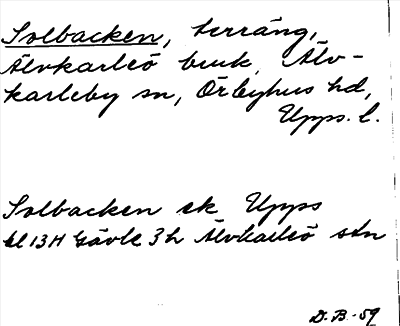 Solbacken, terräng,
Älvkarleö bruk, Älv-
karleby sn, Örbyhus hd,
Upps. l.
Solbacken ek Upps
bl 13H Gävle 3h Älvkarleö stn
D.B.-59